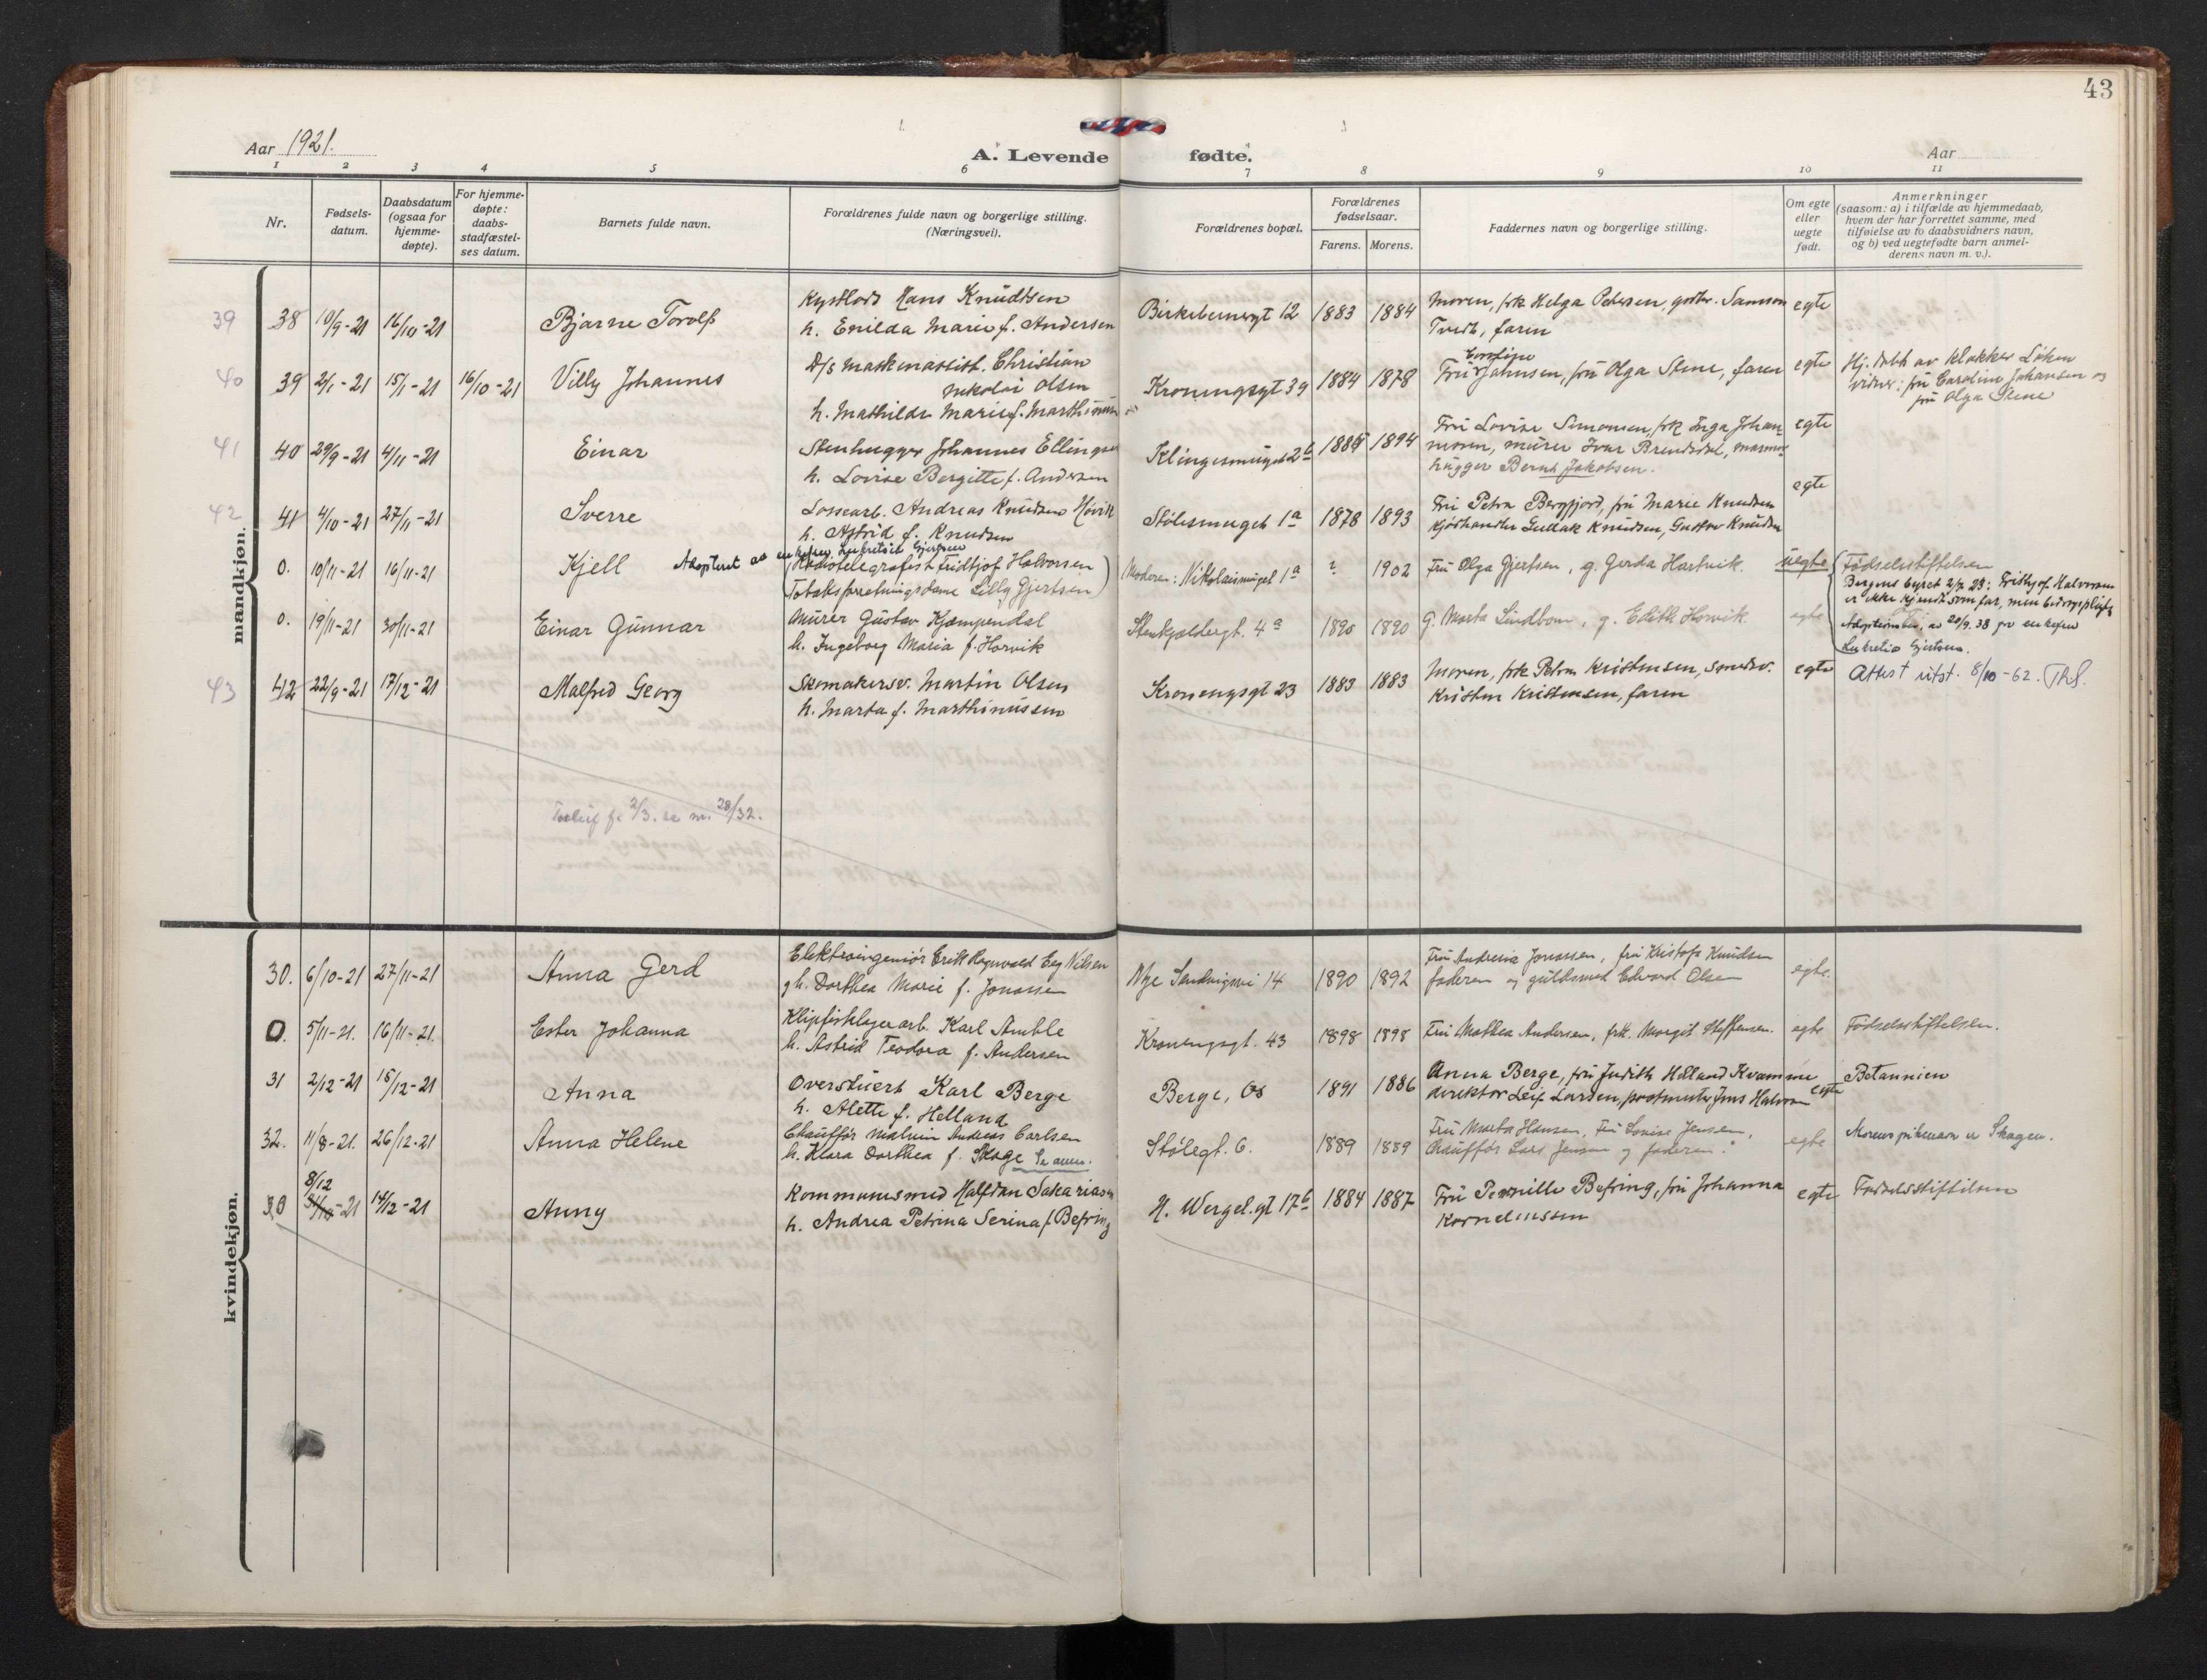 43
Aar 1921.
A. Levende fødte.
Aar
1 2 3 4 5 6 7 8 9 10 11
Nr.
Fødsels-
datum.
Daabsdatum
(ogsaa for
hjemme-
døpte).
For hjemme-
døpte:
daabs-
stadfæstel-
ses datum.
Barnets fulde navn.
Forældrenes fulde navn og borgerlige stilling.
(Næringsvei).
Forældrenes bopæl.
Forældrenes
fødselsaar.
Farens. Morens.
Faddernes navn og borgerlige stilling.
Om egte
eller
uegte
født.
Anmerkninger
(saasom: a) i tilfælde av hjemmedaab,
hvem der har forrettet samme, med
tilføielse av to daabsvidners navn,
og b) ved uegtefødte barn anmel-
derens navn m. v.).
mandkjøn.
39 38 10/9-21 16/10-21 Bjarne Torolf
Kystlods Hans Knudtsen
h. Enilda Marie f. Andersen
Birkebeinergt 12 1883 1884
Moren, frk Helga Petersen, Samson
Tvedt, faren
egte
40 39 2/1-21 15/1-21 16/10-21 Villy Johannes
D/s Maskinassist. Christian
Nikolai Olsen
h. Mathilde Marie f. Marthinus
Kroningsgt 39 1884 1878
Fru Johnsen, fru Olga Stene, faren
egte
Hj. døbt av klokker Løken
vidner: fru Caroline Johansen og
fru Olga Stene
41 40 29/9-21 4/11-21 Einar
Stenhugger Johannes Ellingsen
h. Lovise Bergitte f. Andersen
Klingesmuget 2b 1885 1894
Fru Lovise Simonsen, frk Inga Johan
moren, murer Ivar Brendsdal,
hugger Bernt Jakobsen.
egte
42 41 4/10-21 27/11-21 Sverre
Lossearb. Andreas Knudsen Høvik
h. Astrid f. Knudsen
Stølesmuget 1a 1878 1893
Fru Petra Bergfjord, fru Marie Knudsen
kjødhandler Gullak Knudsen, Gustav Knudsen
egte
0. 10/11-21 16/11-21 Kjell
Adopteret av enkefru Lukretsia Gjertsen
(Radiotelegrafist Fridtjof Halvorsen
Tobaksforretningsdame Lilly Gjertsen)
Moderen: Nikolaismuget 1a ? 1902
Fru Olga Gjertsen, g. Gerda Hartvik.
uegte
Fødselsstiftelsen
Bergens byret 2/7 23: Frithjof Halvorsen
er ikke kjendt som far, men bidragspligtig
Adoptionsbev. av 20/9. 38 for enkefru
Lukretia Gjertsen.
0. 19/11-21 30/11-21 Einar Gunnar
Murer Gustav Kjempendal
h. Ingeborg Maria f. Horvik
Stenkjeldergt. 4a 1890 1890
g. Marta Lindbom, g. Edith Horvik.
egte
43 42 22/9-21 17/12-21 Malfred Georg
Skomakersv. Martin Olsen
h. Marta f. Marthinussen
Kroningsgt 23 1883 1883
Moren, frk Petra Kristensen,
Kristen Kristensen, faren
egte
Attest utst. 8/10-62.
28/32.
kvindekjøn.
30. 6/10-21 27/11-21 Anna Gerd
Elektroingeniør Erik Ragnvald Eeg Nilsen
h. Dorthea Marie f. Jonassen
Nye Sandvigsvei 14 1890 1892
Fru Andrea Jonassen, fru Kristofa Knudsen
faderen og guldsmed Edvard Olsen
egte.
0. 5/11-21. 16/11-21. Ester Johanna
Klipfisklagerarb. Karl Amble
h. Astrid Teodora f. Andersen
Kroningsgt. 43 1898 1898
Fru Mathea Andersen, frk. Margit Steffensen.
egte
Fødselsstiftelsen.
31 2/12-21 15/12-21 Anna
Overstuert Karl Berge
h. Alette f. Helland
Berge, Os 1891 1886
Anna Berge, fru Judith Helland Kvamme
direktør Leif Larsen, postmester Jens Halvorsen
egte
Betannien
32. 11/8-21. 26/12-21 Anna Helene
Chauffør Malvin Andreas Carlsen
h. Klara Dorthea f. Skage Se anm.
Stølegt. 6. 1889 1889
Fru Marta Hansen, Fru Lovise Jensen,
Chauffør Lars Jensen og faderen.
egte
Morens pikenavn er Skagen.
30 8/12 -21 14/12-21 Anny
Kommunesmed Halfdan Sakariasen
h. Andrea Petrina Serina f. Befring
H. Wergel.gt 17b 1884 1887
Fru Pernille Befring, fru Johanna
Korneliussen
egte
Fødselsstiftelsen